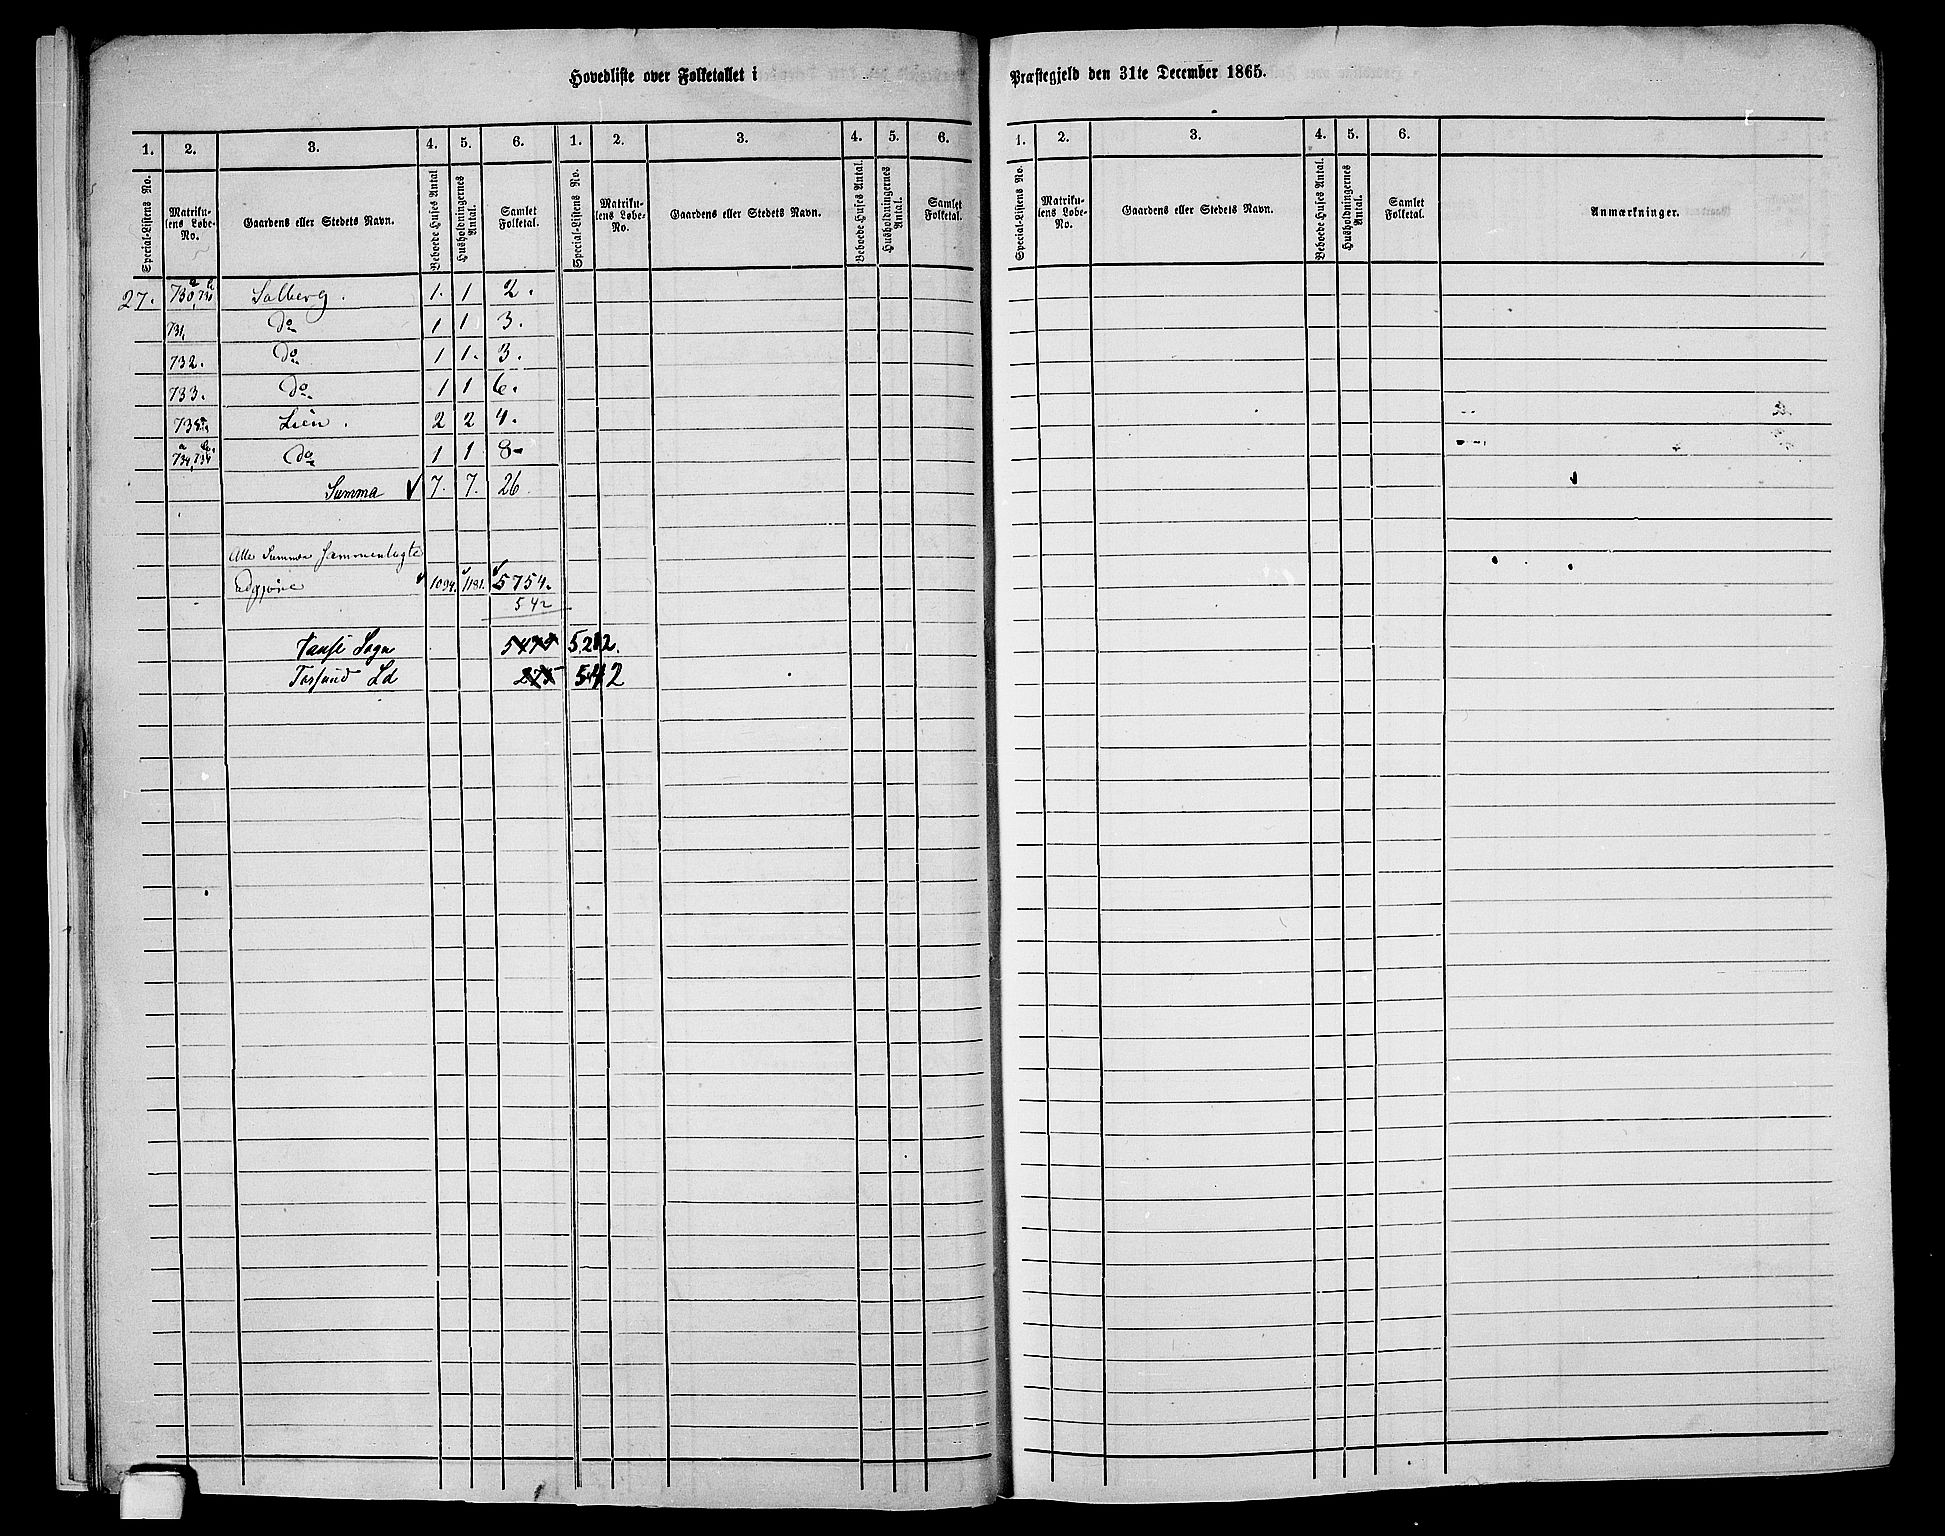 Hovedliste over Folketallet i Præstegjeld den 31te December 1865.
1. 2. 3. 4. 5. 6. 1. 2. 3. 4. 5. 6.
Special-Listens No. Matrikulens Løbe-No. Gaardens eller Stedets Navn. Beboede Huses Antal Husholdningernes Antal. Samlet Folketal. Special-Listens No. Matrikulens Løbe-No. Gaardens eller Stedets Navn. Beboede Huses Antal. Husholdningernes Antal. Samlet Folketal.
27. 730a, 730b Solberg. 1. 1 2.
731. Do 1 1 3.
732. Do 1 1. 3.
733. Do 1 1 6.
Lien. 2 2 4.
734a, 734b Do 1 1 8
Summa 7. 7. 26
Alle Summer sammenlagte
Udgjøre 1094. 1181. 5754.
542
Vanse Sogn 5212.
Farsund Ld 542
1. 2. 3. 4. 5. 6.
Special-Listens No. Matrikulens Løbe-No. Gaardens eller Stedets Navn. Beboede Huses Antal. Husholdningernes Antal. Samlet Folketal. Anmærkninger.